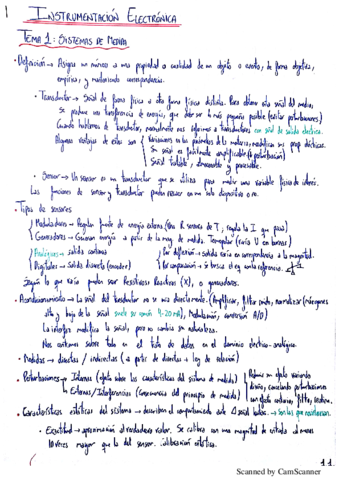 INSTRUMENTACIÓN ELECTRÓNICA
TEMA 1: SISTEMAS DE MEDIDA
• Definición → Asigna un número a una propiedad o cualidad de un objeto o evento, de forma objetiva,
empírica, y manteniendo correspondencia.
• Transductor → Señal de forma física a otra forma física distinta. Para obtener esta señal del medio,
Se produce una transferencia de energía, que debe ser lo más pequeña posible (evitar perturbaciones)
Cuando hablemos de transductor, normalmente nos referimos a transductores con señal de salida eléctrica.
Algunas ventajas de estos son Variaciones en los parámetros de la materia, modifican sus prop. eléctricas.
Su señal es fácilmente amplificable (no perturbación)
Señal fiable, y procesable.
• Sensor → Un sensor es un transductor que se utiliza para medir una variable física de interés.
Las funciones de sensor y transductor pueden recaer en un solo dispositivo o no.
• Tipos de sensores
Moduladores → Regulan fuente de energía externa (Una R sensora de T, regula la I que pasa)
Generadores → Generan energía a partir de la mag. de medida. Termopar (varía V en bornes)
Analógicos → salida continua
Digitales → salida discreta (encoder)
Por deflexión → salida varía en correspondencia a la magnitud.
Por comparación → se busca el eq. con la referencia.
Según lo que varía pueden ser Resistivos Reactivos (X), o generadores.
• Acondicionamiento → La señal del transductor no se usa directamente. (Amplificar, filtrar ruido, normalizar (márgenes
alto y bajo de la señal suele ser común 4-20 mA), Modulación, conversión A/D)
La interfaz modifica la señal, pero no cambia su naturaleza.
Nos centramos sobre todo en el dominio electro-analógico.
• Medidas → directas / indirectas (a partir de directas + ley de relación)
• Perturbaciones → Internas (efecto sobre las características del sistema de medida)
Externas/Interferencias (consecuencia del principio de medida)
• Características estáticas del sistema → describen el comportamiento ante Δ señal lentos. → son las que
• Exactitud → aproximación al verdadero valor. Se calibra con una magnitud de entrada al menos
10 veces mayor que la del sensor. Calibración estática.
1.1
Scanned by CamScanner